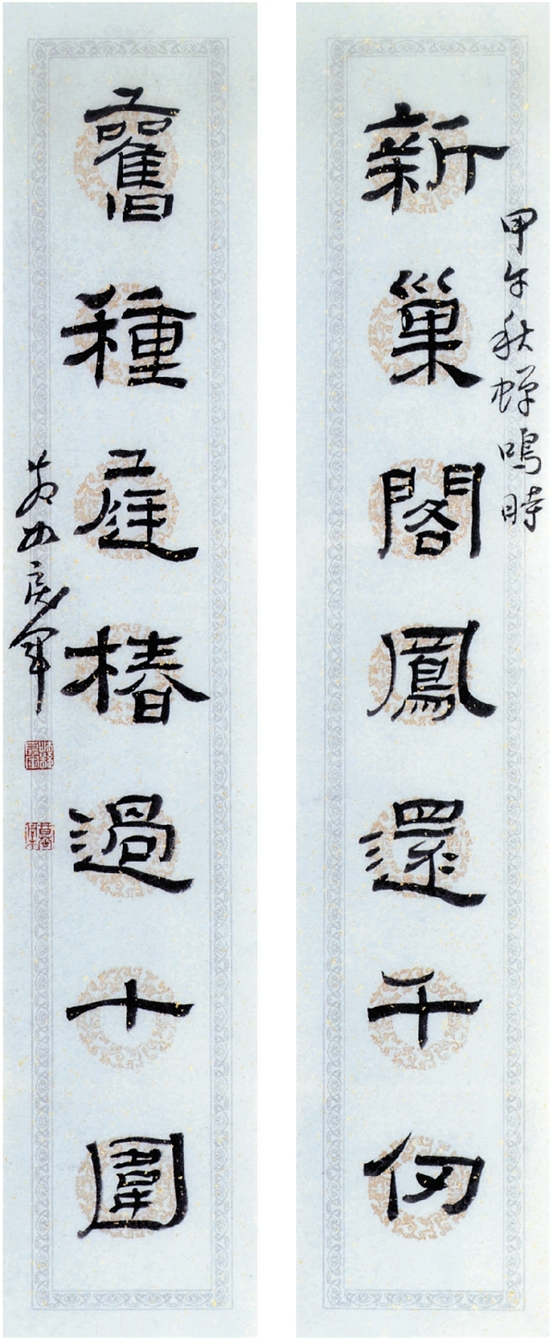 新巢閣鳳還千仞
甲午秋蟬鳴時
舊種庭椿過十圍